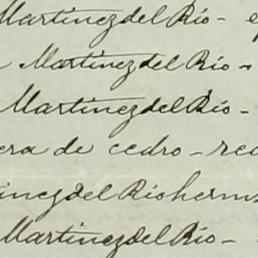 Martinez del Rio -
Martinez del Rio -
Martinez del Rio -
era de cedro - rec
inez del Rio herm
Martinez del Rio -